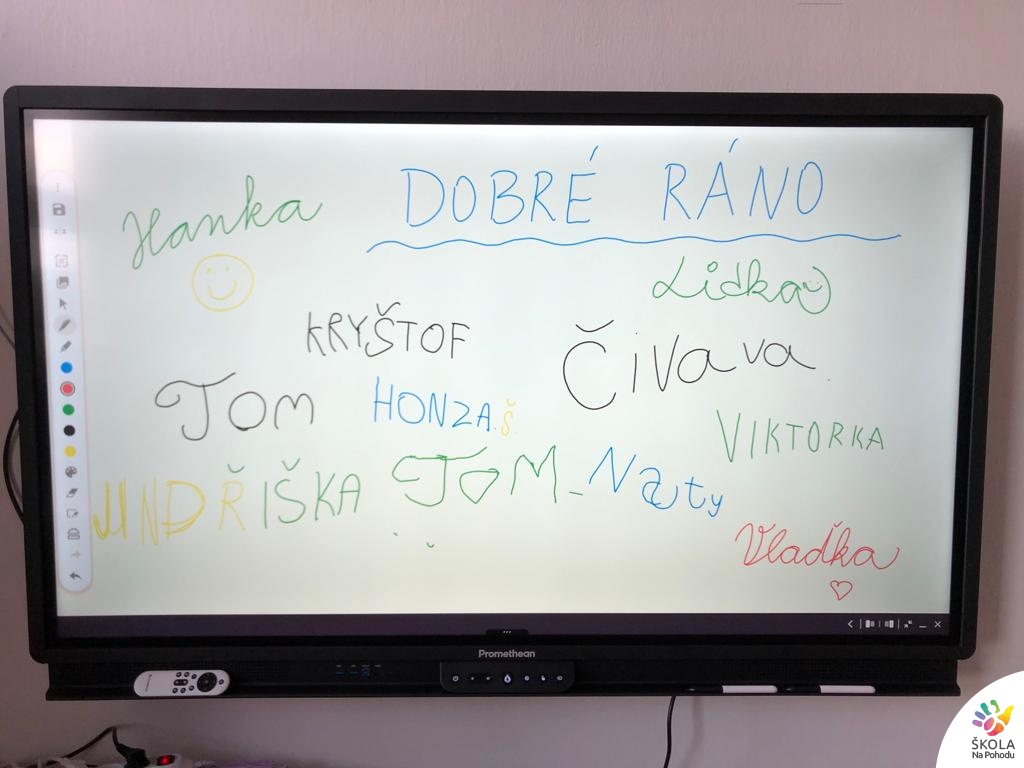 DOBRÉ RÁNO
Hanka
Lidka
KRYŠTOF
Čivava
TOM
HONZA.Š
VIKTORKA
JINDŘIŠKA
TOM-
Naty
Vlaďka
Promethean
ŠKOLA
Na Pohodu